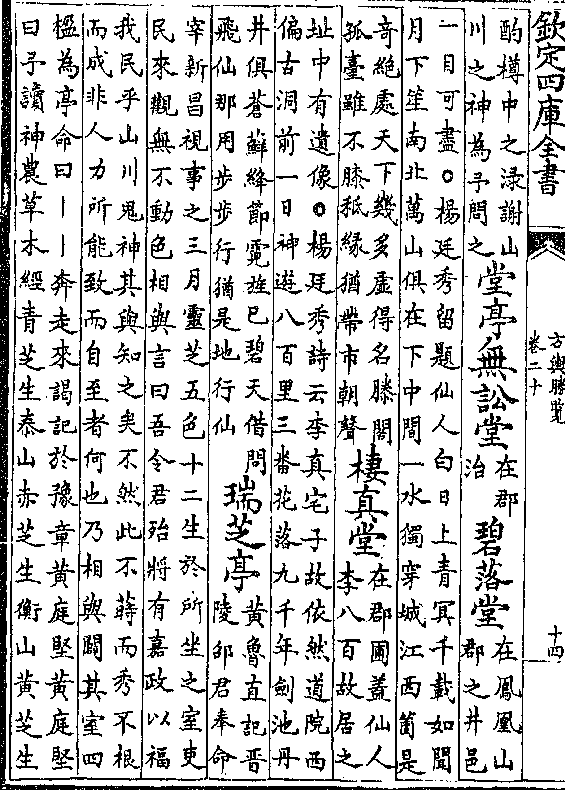 欽定四庫全書
方輿勝覽
卷二十
十四
酌樽中之渌謝山
川之神為予問之
堂亭無訟堂
在郡
治
碧落堂
在鳳凰山
郡之井邑
一目可盡○楊廷秀留題仙人白日上青冥千載如聞
月下笙南北萬山俱在下中間一水獨穿城江西箇是
奇絶處天下幾多虛得名滕閣
孤臺雖不膝秪緣猶帶市朝聲
棲真堂
在郡圃蓋仙人
李八百故居之
址中有遺像○楊廷秀詩云李真宅子故依然道院西
偏古洞前一日神遊八百里三畨花落九千年劍池丹
井俱蒼蘚絳節霓旌巳碧天借問
飛仙那用步步行猶是地行仙
瑞芝亭
黃魯直記晉
陵邵君奉命
宰新昌視事之三月靈芝五色十二生於所坐之室吏
民來觀無不動色相與言曰吾令君殆將有嘉政以福
我民乎山川鬼神其與知之矣不然此不蒔而秀不根
而成非人力所能致而自至者何也乃相與闢其室四
楹為亭命曰丨丨奔走來謁記於豫章黃庭堅黃庭堅
曰予讀神農草木經青芝生泰山赤芝生衡山黃芝生